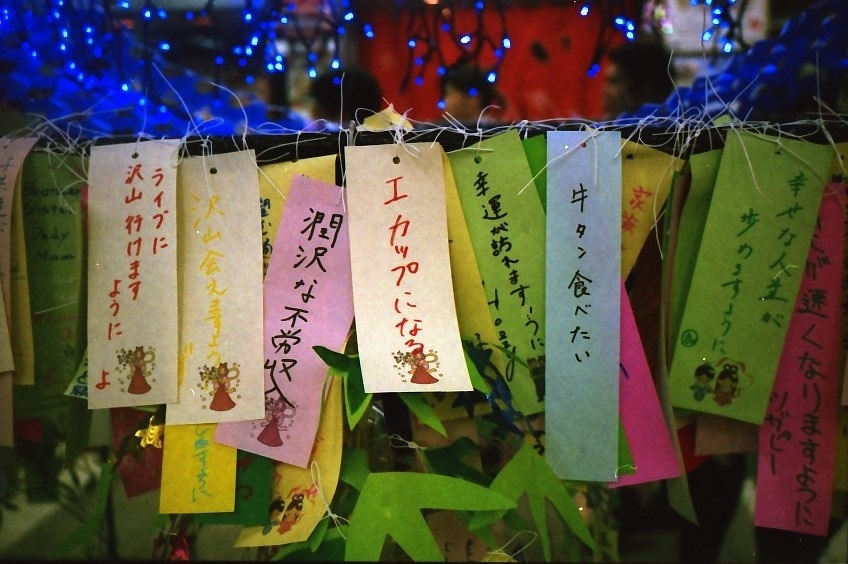 Brother
Sister
Jody
Mam
ライブに
沢山行けます
ように
沢山会えますよう
ますように
潤沢な不労収入
エカップになる
幸運が訪れますように
牛タン食べたい
家族
幸せな人生が
歩めますように
が速くなりますように